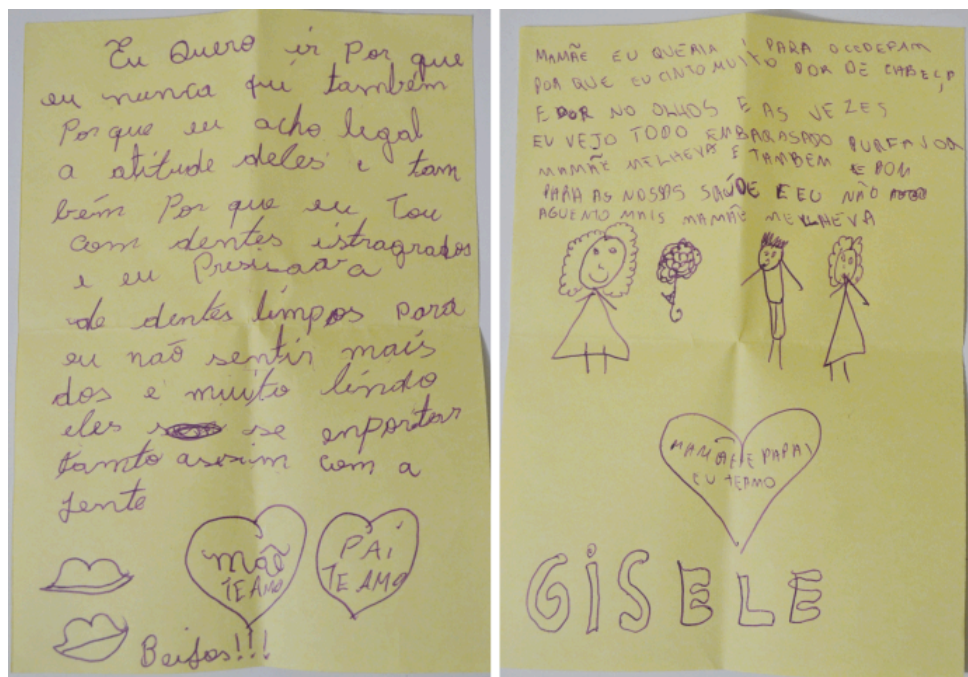 Eu Quero ir Por que
eu nunca fui também
Por que eu acho legal
a atitude deles e tam
bém Por que eu Tou
com dentes istragrados
e eu
de dentes limpos para
eu naõ sentir mais
dos e muito lindo
eles se enportar
tamto assim com a
Jente
mão
TE AMO
PAI
TE AMO
Beijos!!!
MAMÃE EU QUERIA Í PARA O CEDEPAM
POR QUE EU CINTO MUITO DOR DE CABEÇA
E DOR NO OLHOS E AS VEZES
EU VEJO TODO EMBARASADO PURFAVOR
MAMÃE MELHEVA E TAMBEM E BOM
PARA AS NOSSAS SAÚDE E EU NÃO
AGUENTO MAIS MAMÃE MELHEVA
MAMÃE E PAPAI
EU TEAMO
GISELE